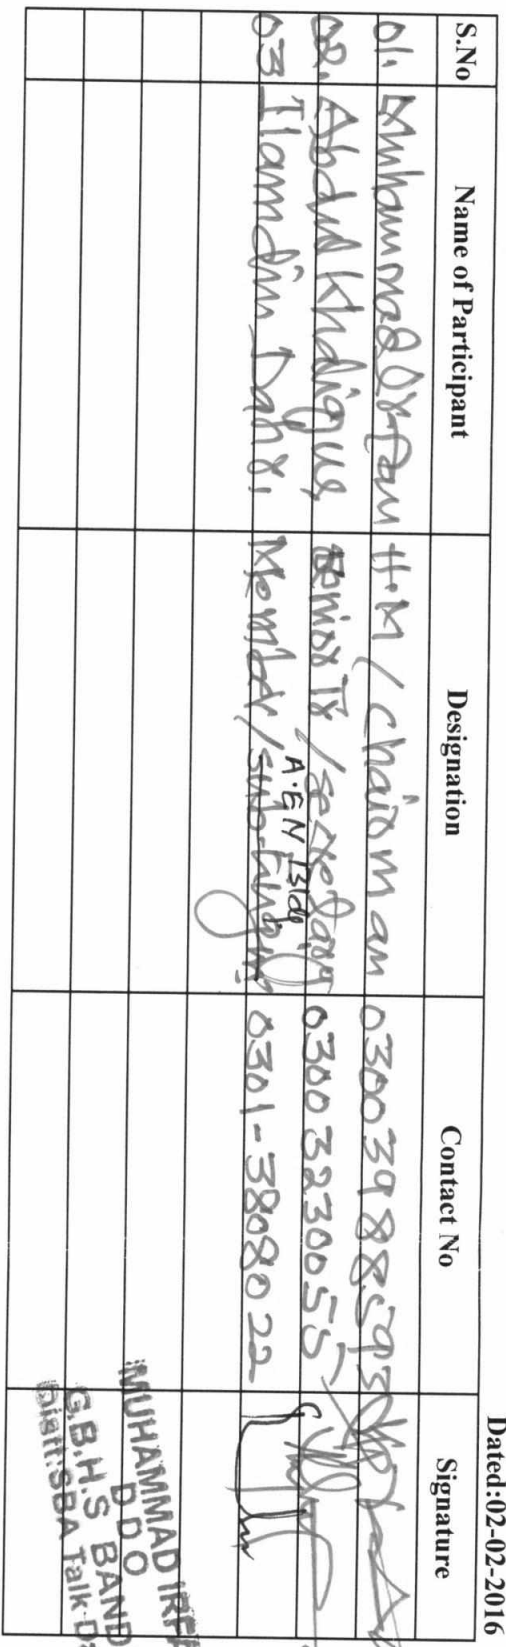 Dated:02-02-2016
S.No Name of Participant Designation Contact No Signature
01. Muhammad Irfan H.M / Chairman 03003988593
02. Abdul Khalique Senior Tr / Secretary 03003230055
A.EN Bldg
03 Ilamdin Dahr. Member / Sub. Engin: 0301-3808022
MUHAMMAD IRFA
D D O
G.B.H.S BAND
Distt:SBA Talk-Da